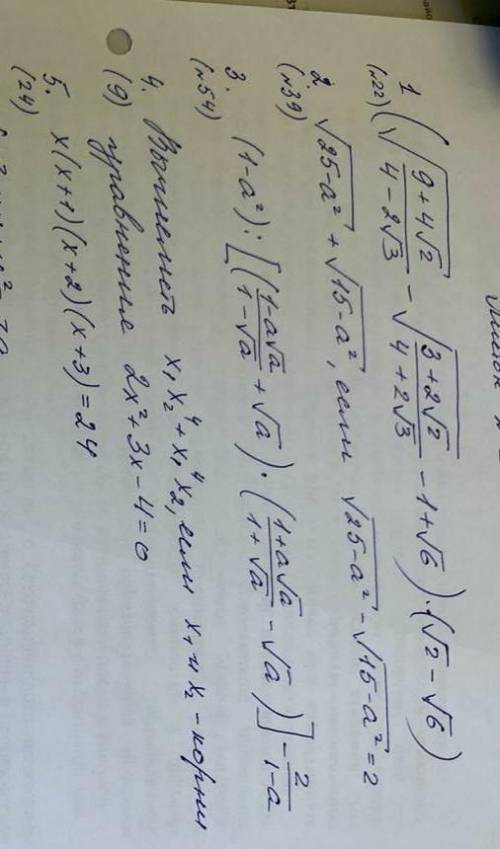 1 (√((9+4√2)/(4-2√3)) - √((3+2√2)/(4+2√3)) - 1+√6)·(√2-√6)
(№22)
2. √(25-a²) + √(15-a²), если √(25-a²) - √(15-a²) = 2
(№39)
3. (1-a²):[((1-a√a)/(1-√a) + √a)·((1+a√a)/(1+√a) - √a)] - 2/(1-a)
(№54)
4. Вычислить x₁x₂⁴ + x₁⁴x₂, если x₁ и x₂ - корни
(9) уравнения 2x²+3x-4=0
5. x(x+1)(x+2)(x+3)=24
(24)